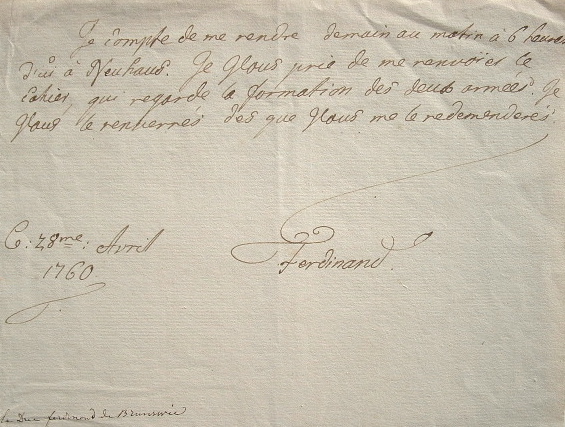 Je compte de me rendre demain au matin à 6 heures
d'ici à Neuhaus. Je Vous prie de me renvoïer le
Cahier, qui regarde la formation des deux armées. Je
Vous le renverres des que Vous me le redemenderés.
C: 28me: Avril
1760
Ferdinand.
le Duc ferdinand de Brunswic